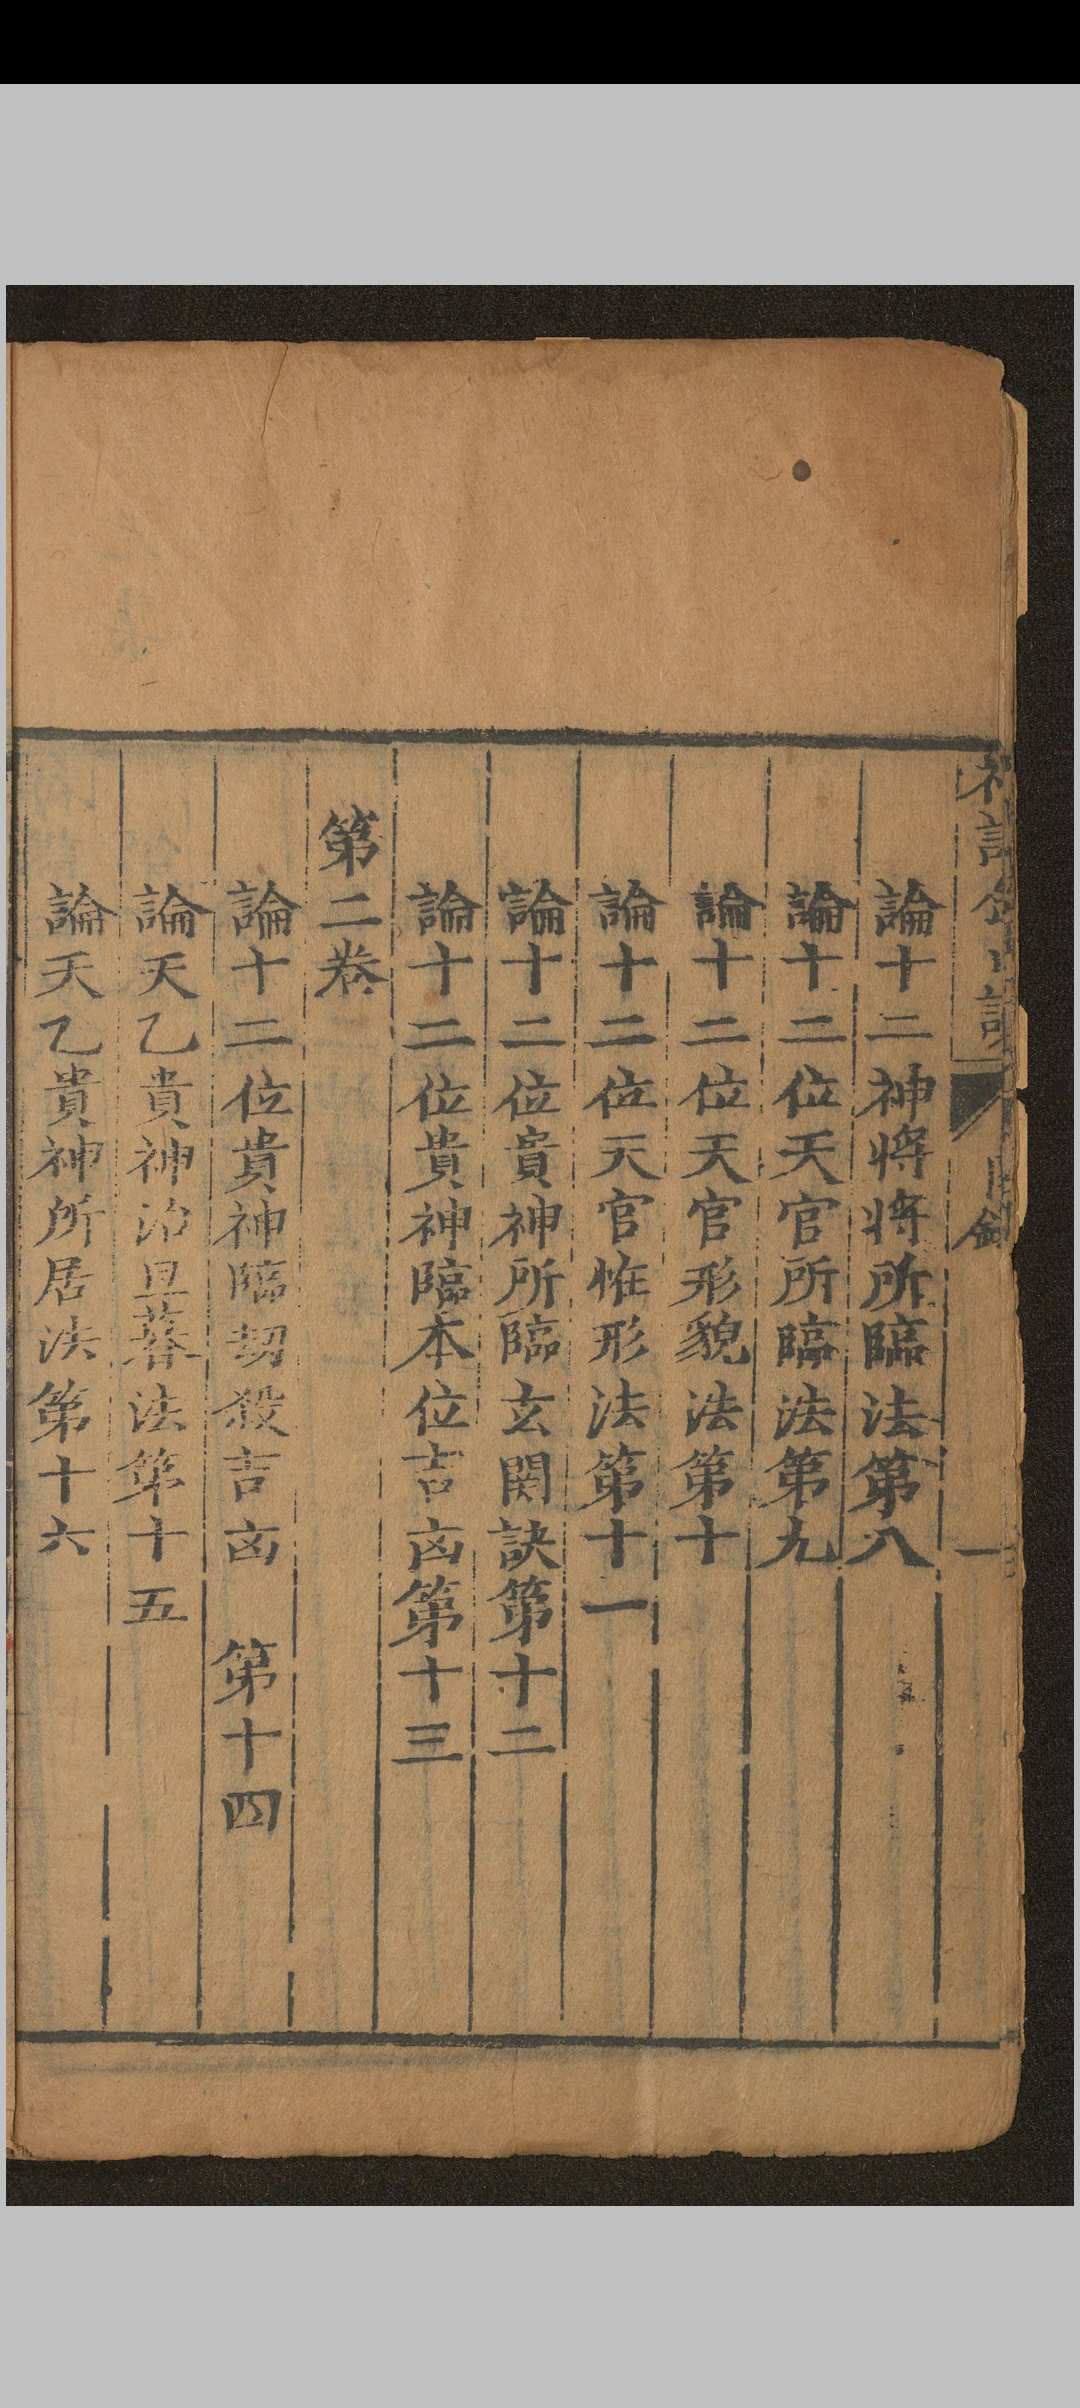 目錄
一
論十二神將將所臨法第八
論十二位天官所臨法第九
論十二位天官形貌法第十
論十二位天官惟形法第十一
論十二位貴神所臨玄関訣第十二
論十二位貴神臨本位吉凶第十三
第二卷
論十二位貴神臨刼殺吉凶 第十四
論天乙貴神治旦暮法第十五
論天乙貴神所居法第十六